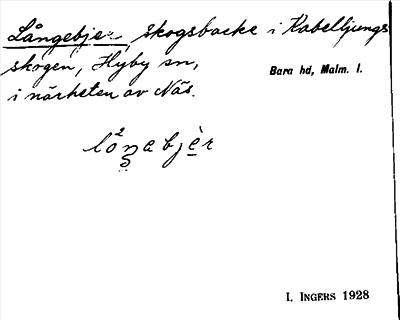 Långebjer, skogsbacke i Kabelljungs
skogen, Hyby sn,
i närheten av Näs.
Bara hd, Malm. l.
I. INGERS 1928